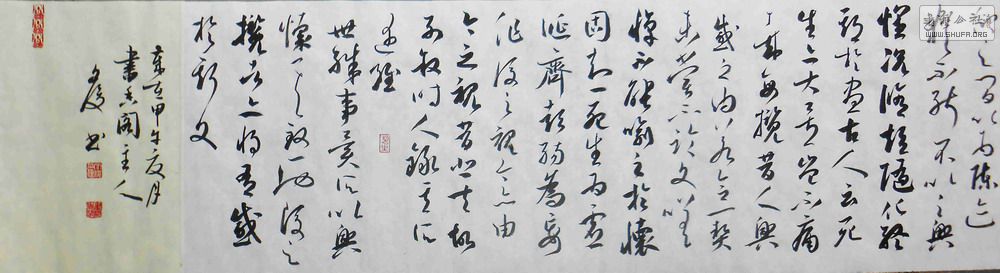 之間以為陳迹
猶不能不以之興
懷況脩短隨化終
期於盡古人云死
生亦大矣豈不痛
哉每攬昔人興
感之由若合一契
未嘗不臨文嗟
悼不能喻之於懷
固知一死生為虛
誕齊彭殤為妄
作後之視今亦由
今之視昔悲夫故
列敘時人錄其所
述雖
世殊事異所以興
懷其致一也後之
攬者亦將有感
於斯文
甲午夏月
書香閣主人
書
WWW.SHUFA.ORG